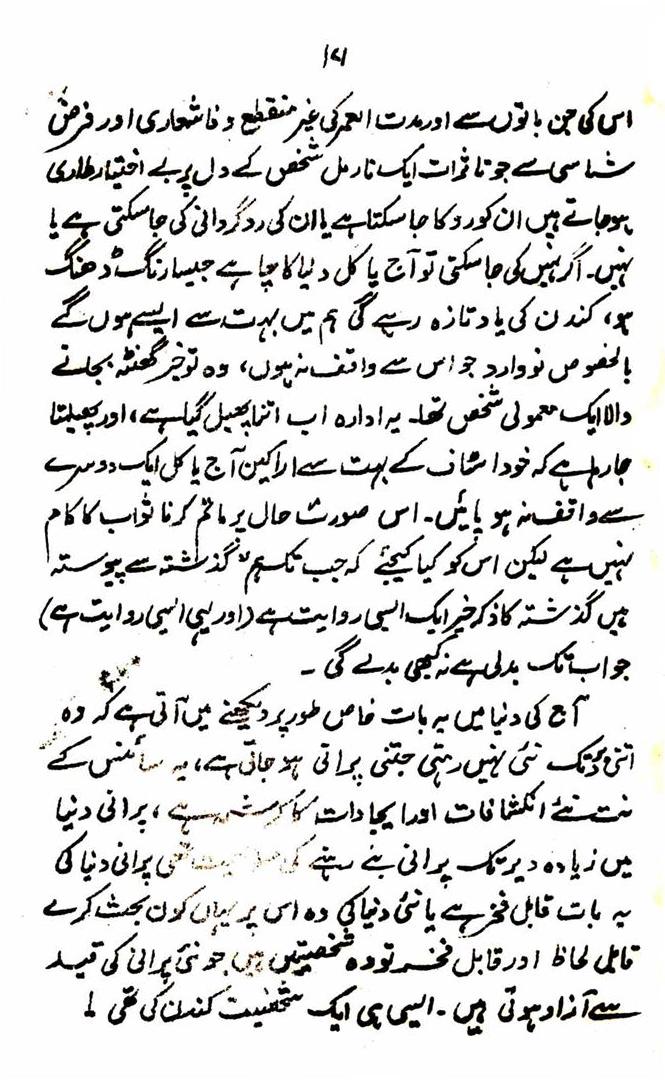 ۱۷۱
اس کی جن باتوں سے اور مدت العمر کی غیر منقطع وفا شعاری اور فرض
شناسی سے جو تاثرات ایک نارمل شخص کے دل پر بے اختیار طاری
ہو جاتے ہیں ان کو روکا جا سکتا ہے یا ان کی روگردانی کی جا سکتی ہے یا
نہیں۔ اگر نہیں کی جا سکتی تو آج یا کل دنیا کا چاہے جیسا رنگ ڈھنگ
ہو، کندن کی یاد تازہ رہے گی ہم میں بہت سے ایسے ہوں گے
بالخصوص نووارد جو اس سے واقف نہ ہوں، وہ تو خیر گھنٹہ بجانے
والا ایک معمولی شخص تھا۔ یہ ادارہ اب اتنا پھیل گیا ہے، اور پھیلتا
جا رہا ہے کہ خود اسٹاف کے بہت سے اراکین آج یا کل ایک دوسرے
سے واقف نہ ہو پائیں۔ اس صورت حال پر ماتم کرنا ثواب کا کام
نہیں ہے لیکن اس کو کیا کیجئے کہ جب تک ہم گذشتہ سے پیوستہ
ہیں گذشتہ کا ذکر خیر ایک ایسی روایت ہے (اور یہی ایسی روایت ہے)
جو اب تک بدلی ہے نہ کبھی بدلے گی ۔
آج کی دنیا میں یہ بات خاص طور پر دیکھنے میں آتی ہے کہ وہ
اتنی دیر تک نئی نہیں رہتی جتنی پرانی ہو جاتی ہے، یہ سائنس کے
نت نئے انکشافات اور ایجادات کا کرشمہ ہے ، پرانی دنیا
میں زیادہ دیر تک پرانی بنے رہنے کی صلاحیت تھی پرانی دنیا کی
یہ بات قابل فخر ہے یا نئی دنیا کی وہ اس پر یہاں کون بحث کرے
قابل لحاظ اور قابل فخر تو وہ شخصیتیں ہیں جو نئی پرانی کی قید
سے آزاد ہوتی ہیں ۔ ایسی ہی ایک شخصیت کندن کی تھی !